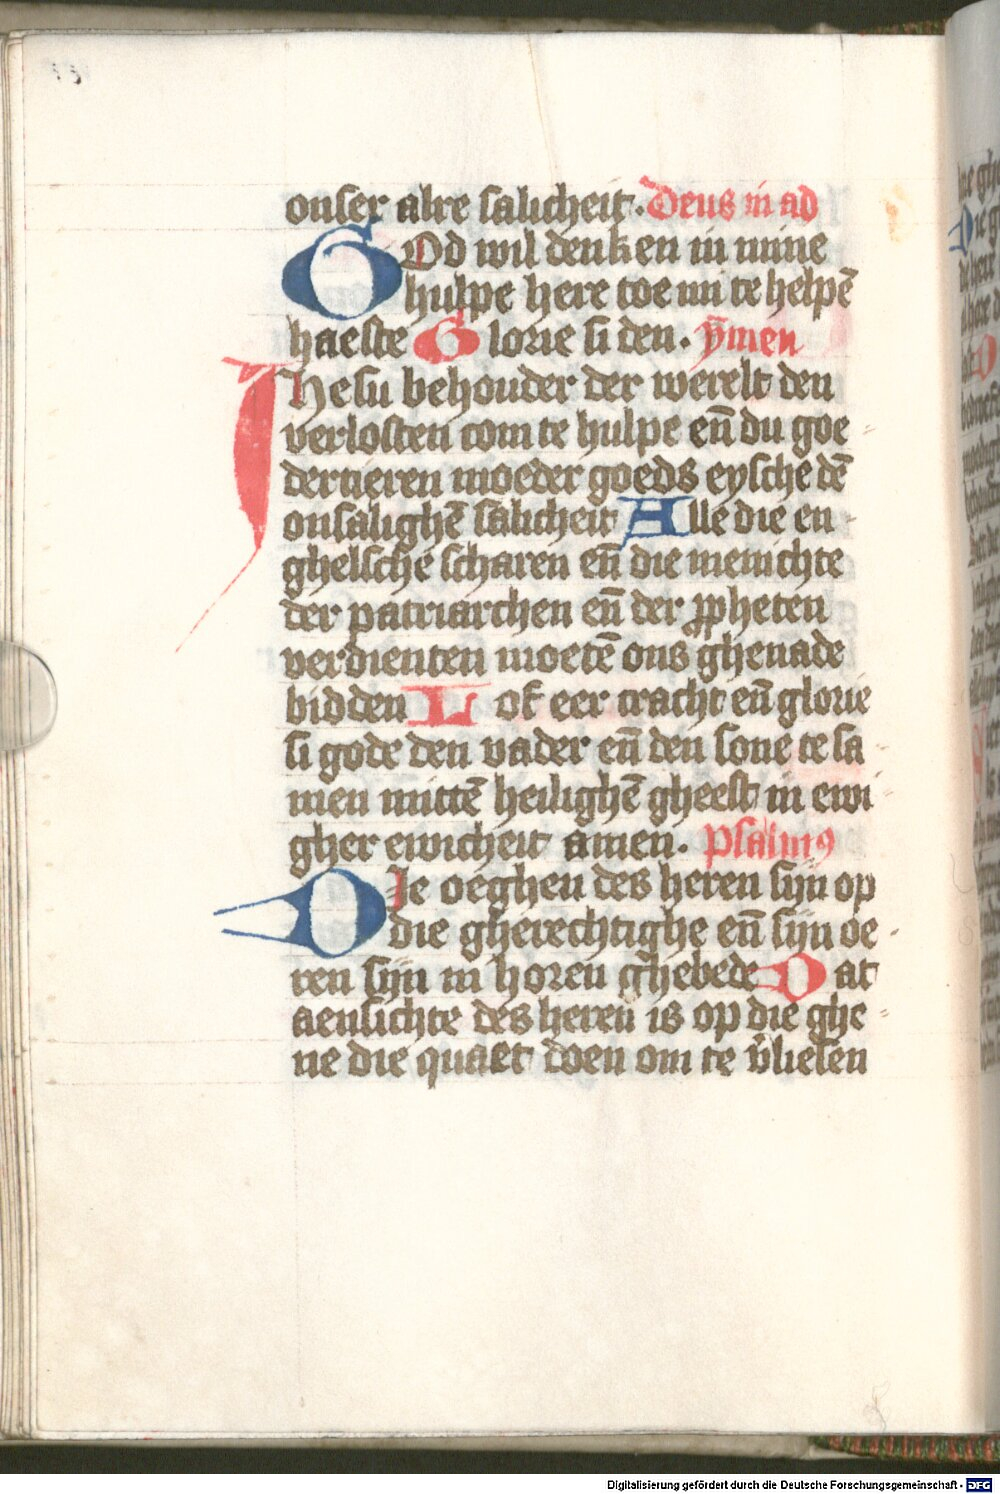 onser alre salicheit. Deus in ad
GOd wil denken in mine
hulpe here toe mi te helpē
haeste Glorie si den. ẏmen
Ihesu behouder der werelt den
verlosten com te hulpe en̄ du goe
dertieren moeder goeds eysche dē
onsalighē salicheit Alle die en
ghelsche scharen en̄ die menichte
der patriarchen en̄ der ꝓpheten
verdienten moetē ons ghenade
bidden Lof eer cracht en̄ glorie
si gode den vader en̄ den sone te sa
men mittē heilighē gheest in ewi
gher ewicheit amen. Psalmꝰ
DIe oeghen des heren sijn op
die gherechtighe en̄ sijn oe
ren sijn in horen ghebede Dat
aensichte des heren is op die ghe
ne die quaet doen om te v̄liesen
Digitalisierung gefördert durch die Deutsche Forschungsgemeinschaft - DFG